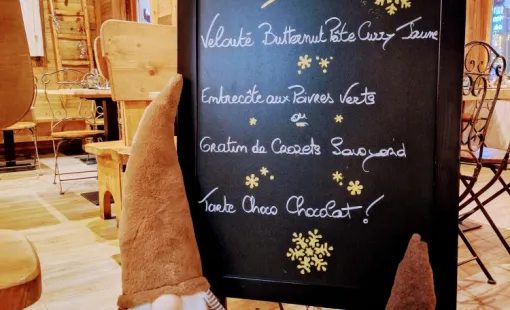 Velouté Butternut Pâte Curry Jaune
Entrecôte aux Poivres Verts
ou
Gratin de Crozets Savoyard
Tarte Choco Chocolat !